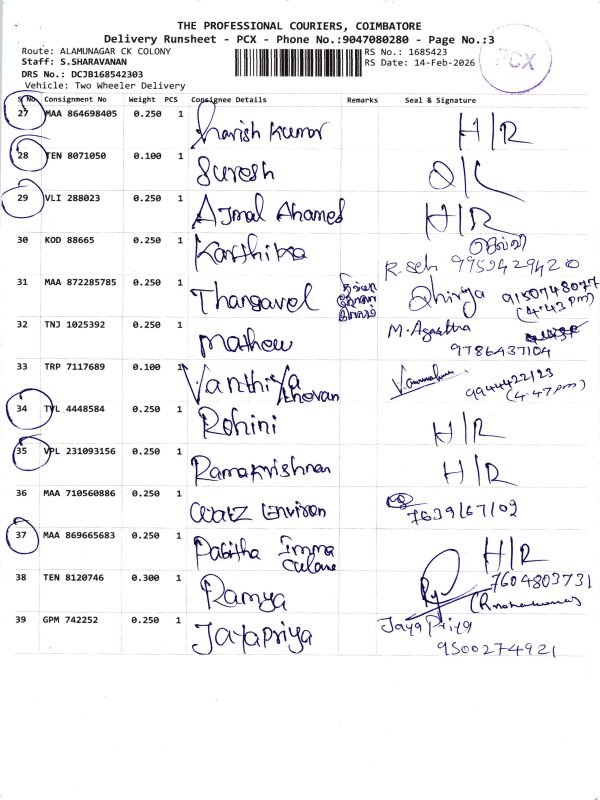 THE PROFESSIONAL COURIERS, COIMBATORE
Delivery Runsheet - PCX - Phone No.:9047080280 - Page No.:3
Route: ALAMUNAGAR CK COLONY
RS No.: 1685423
Staff: S.SHARAVANAN
RS Date: 14-Feb-2026
PCX
DRS No.: DCJB168542303
Vehicle: Two Wheeler Delivery
S No Consignment No Weight PCS Consignee Details Remarks Seal & Signature
27 MAA 864698405 0.250 1 Harish Kumar H/R
28 TEN 8071050 0.100 1 Suresh O/L
29 VLI 288023 0.250 1 Ajmal Ahamed H/R
30 KOD 88665 0.250 1 Karthika செல்வி
R. Seh 9952429420
31 MAA 872285785 0.250 1 Thangavel Dhivya 9150748077
(4:43 pm)
32 TNJ 1025392 0.250 1 Mathew M. Agastha
9786437104
33 TRP 7117689 0.100 1 Vanthiya
thevan 9944422123
(4:47 pm)
34 TVL 4448584 0.250 1 Rohini H/R
35 VPL 231093156 0.250 1 Ramakrishnan H/R
36 MAA 710560886 0.250 1 Watz Environ 7639167109
37 MAA 869665683 0.250 1 Pabitha Imma
culane H/R
38 TEN 8120746 0.300 1 Ramya 7604803731
39 GPM 742252 0.250 1 Jayapriya Jaya Priya
9500274921